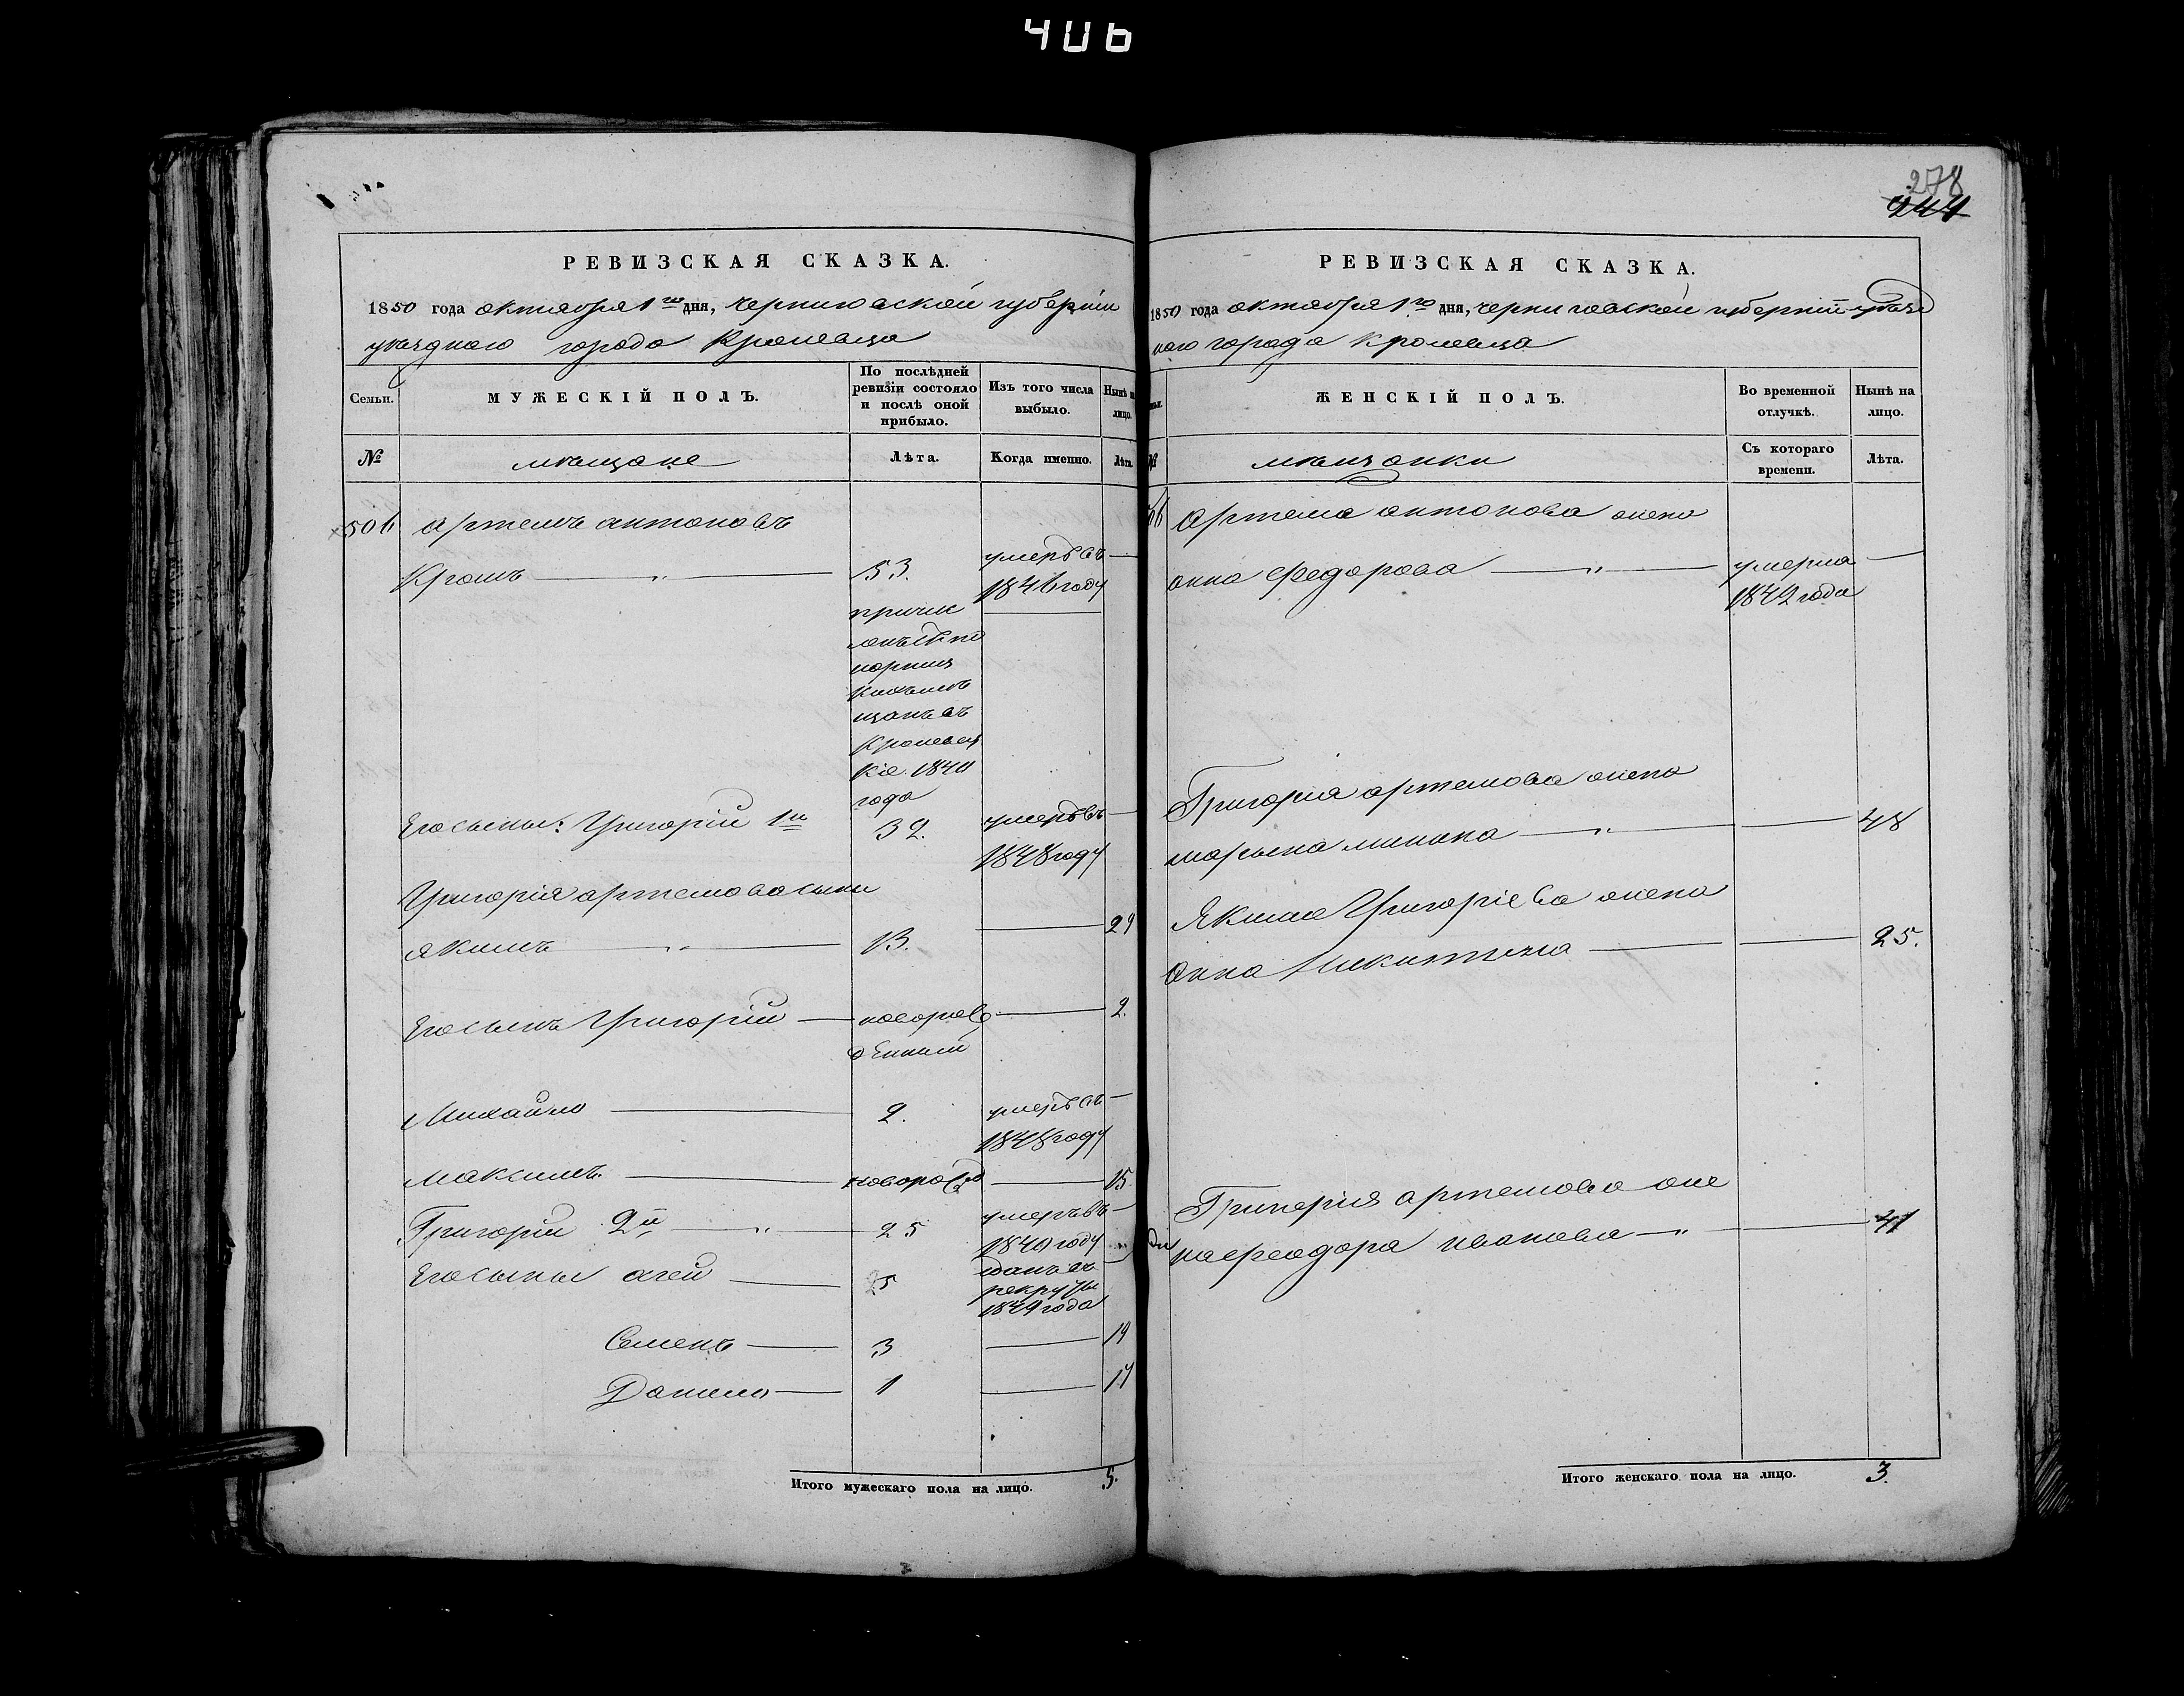 406
278
244
РЕВИЗСКАЯ СКАЗКА.
1850 года октября 1го дня, черниговской губерніи
уѣзднаго города Кролевца
Семьи.
МУЖЕСКІЙ ПОЛЪ.
По послѣдней ревизіи состояло и послѣ оной прибыло.
Изъ того числа выбыло.
Нынѣ на лицо.
№
мѣщане
Лѣта.
Когда именно.
Лѣта.
506 Артемъ антоновъ
Кромъ — „ — 53. умеръ въ —
1846 году
причис
корпуса
щанъ въ
Кролевец
кіе 1840
года
Его сыны: Григорій 1й 32. умеръ въ —
1848 году
Григорія артемова сыны
якимъ — „ — 13. — 29
Его сынъ Григорій — новорож — 2.
денный
Михайло — 2. умеръ въ —
1848 году
Максимъ. — новорожд — 15.
Григорій 2й — „ — 25 умеръ въ —
1840 году
Его сыны агей — 25 сданъ въ —
рекруты
1849 года
Семенъ — 3 — 19
Данило — 1 — 17
Итого мужескаго пола на лицо. 5.
РЕВИЗСКАЯ СКАЗКА.
1850 года октября 1го дня, черниговской губерніи уѣзд
наго города Кролевца
ЖЕНСКІЙ ПОЛЪ.
Во временной отлучкѣ.
Нынѣ на лицо.
№
мѣщанки
Съ котораго времени.
Лѣта.
Артема антонова жена
анна Федорова — „ — умерла —
1842 года
Григорія артемова жена
марьяна минина — „ — — 48
Якима Григоріева жена
Анна Никитична — — 25.
Григорія артемова же
на феодора иванова — „ — 41
Итого женскаго пола на лицо. 3.